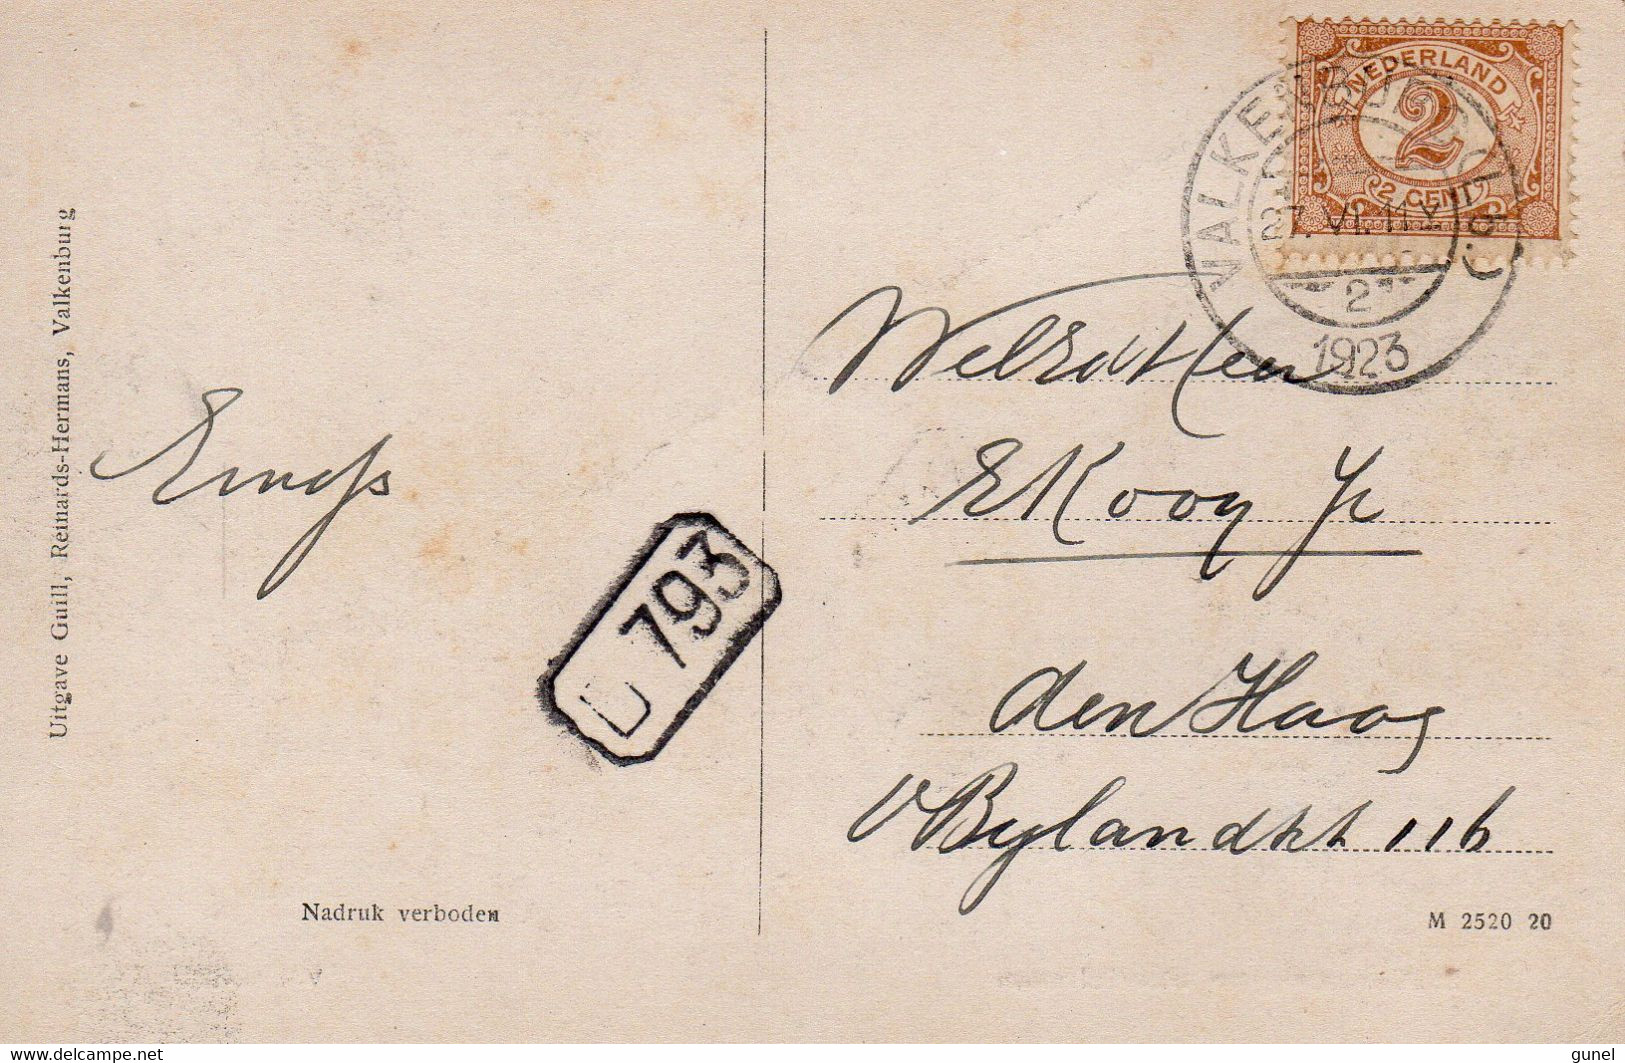 Uitgave Guill, Reinards-Hermans, Valkenburg
NEDERLAND
2
2 CENT
VALKENBURG (LB.)
27.VI.11V
2
1923
WelEdHeer
E Kooy Jr
den Haag
v Bylandtst 116
D 793
Nadruk verboden
M 2520 20
www.delcampe.net
gunel